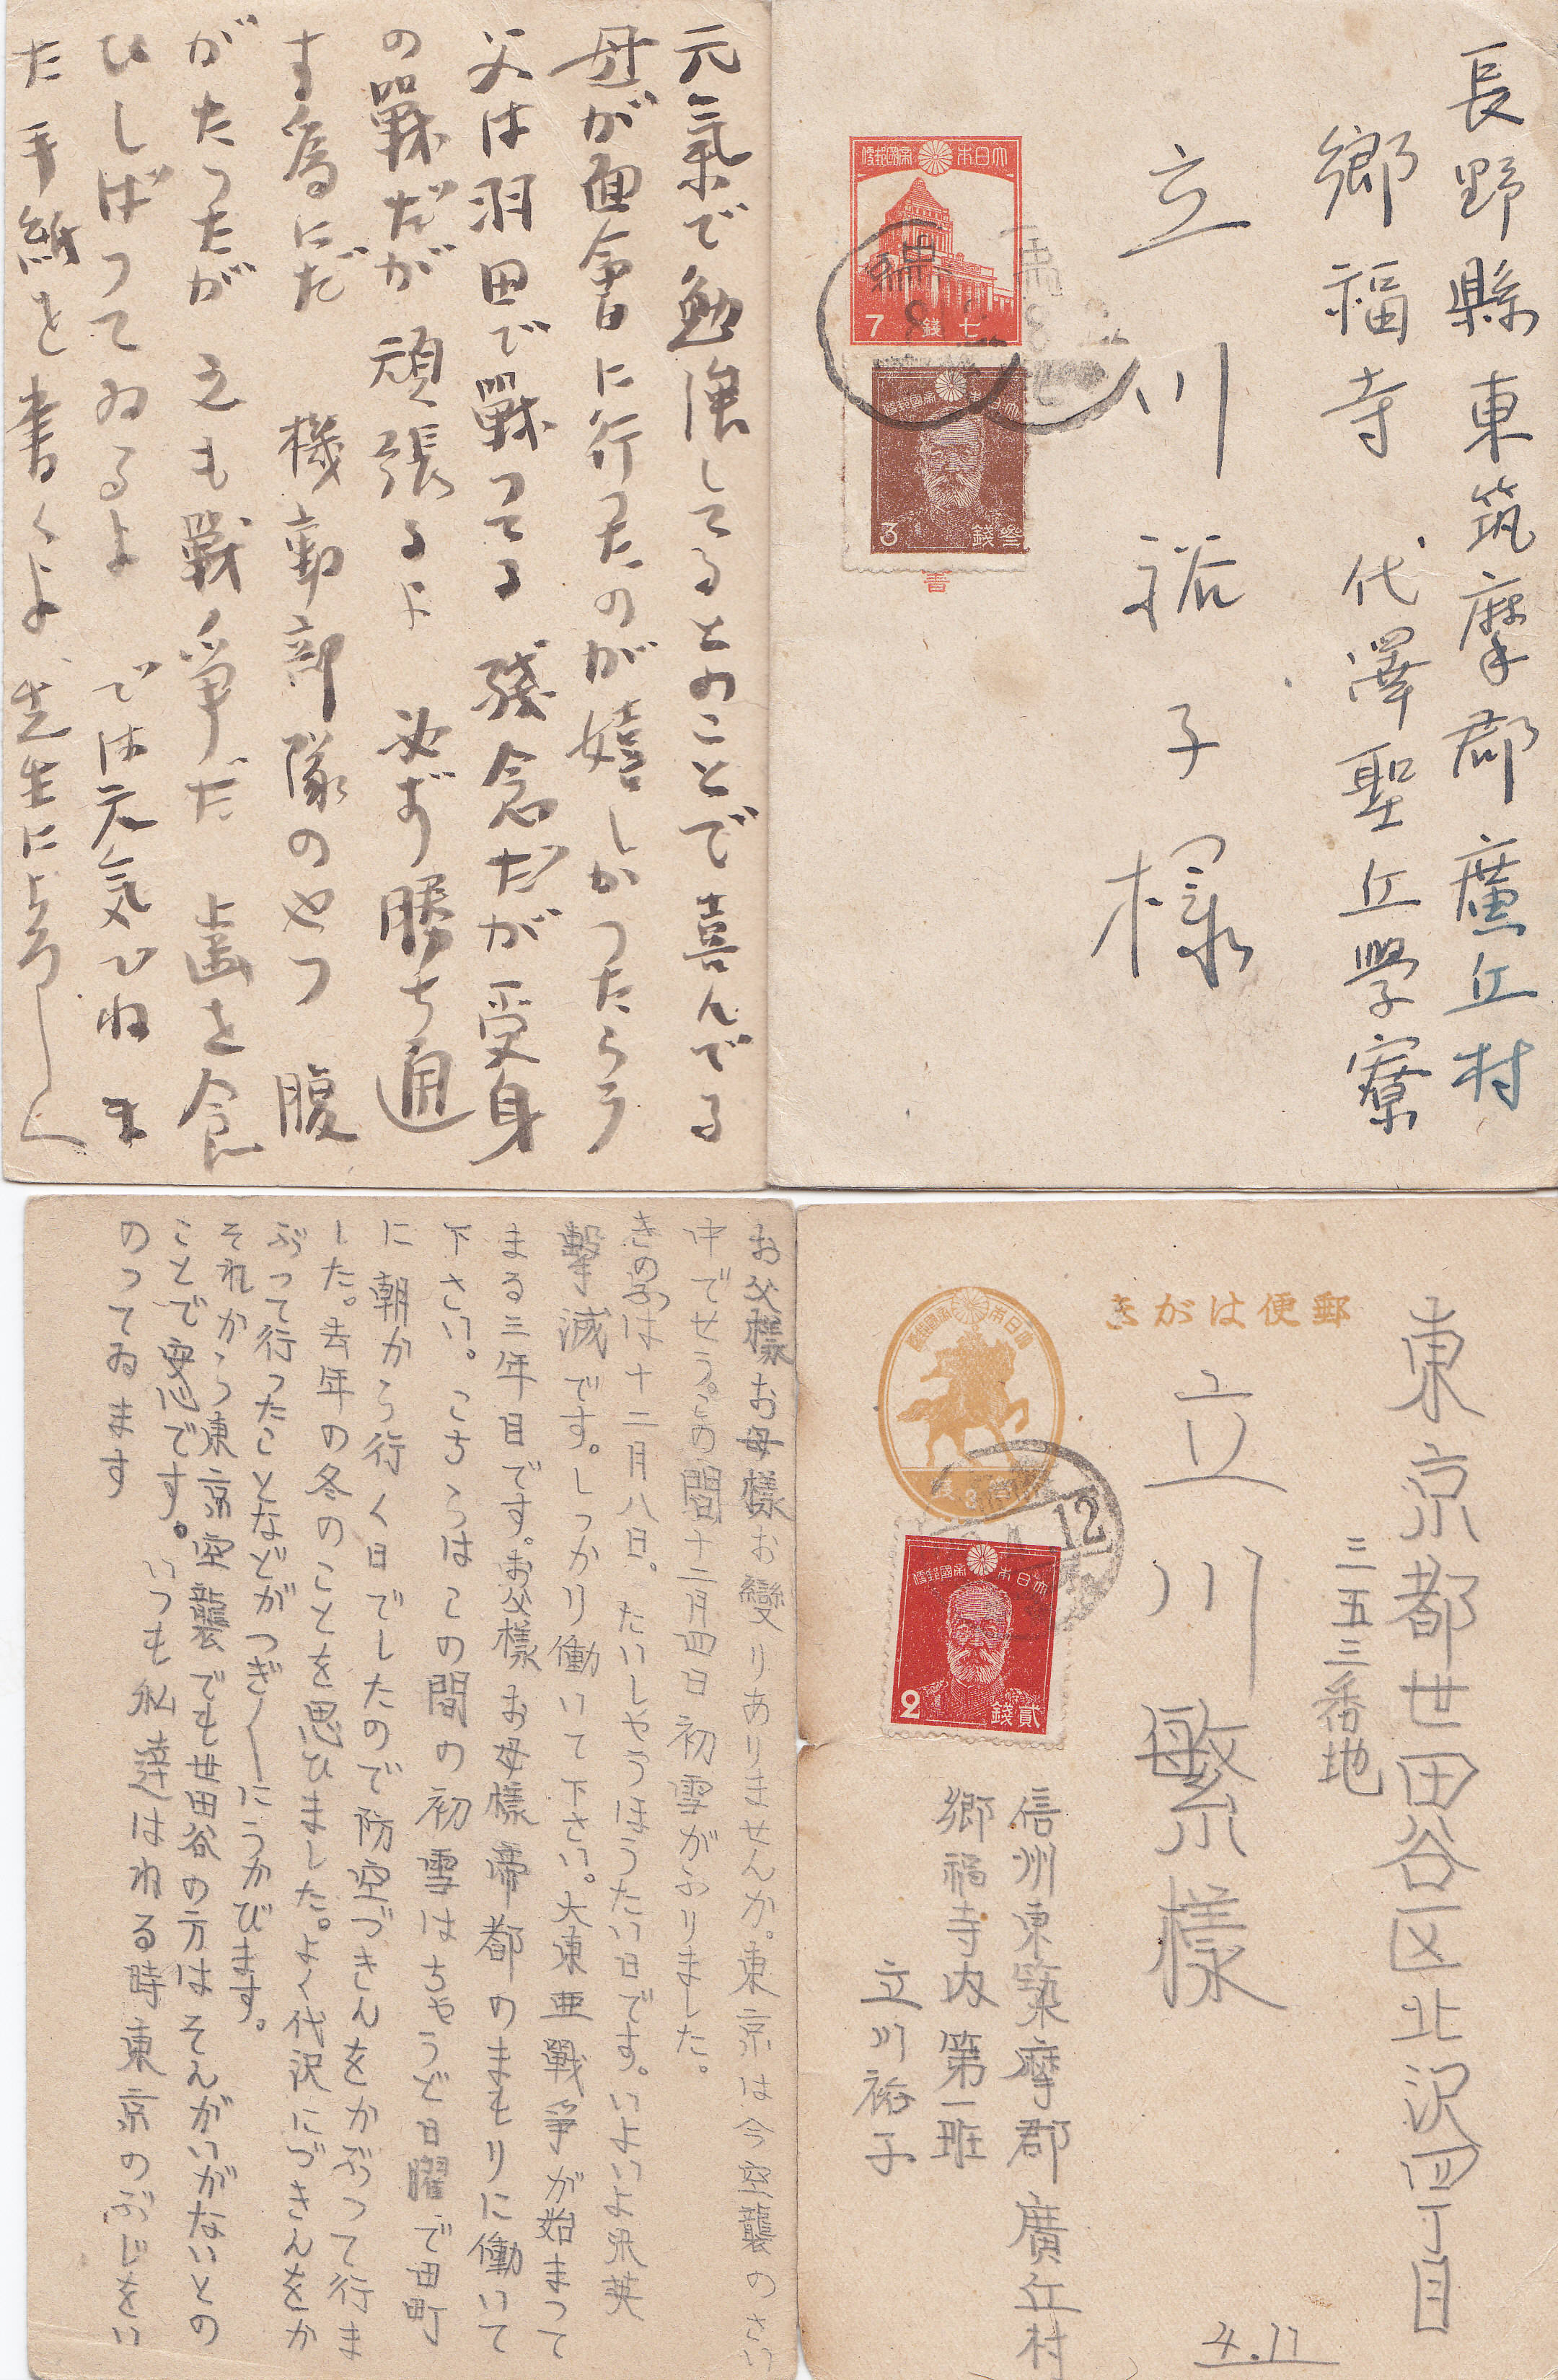 長野縣東筑摩郡廣丘村
郷福寺 代澤聖丘學寮
立川裕子様
大日本帝國郵便
7 銭 七
大日本帝國郵便
3 銭参
元氣で勉強してるとのことで喜んでる
母が面會に行ったのが嬉しかつたらう
父は羽田で戰ってる 殘念だが受身
の戰だが 頑張るよ 必ず勝ち通
す為にだ 機動部隊のやつ 腹
がたつたが 之も戰爭だ 歯を食
ひしばつてゐるよ では元気でね ま
た手紙を書くよ 先生によろしく
郵便はがき
東京都世田谷区北沢四丁目
三五三番地
立川繁様
大日本帝國郵便
大日本帝國郵便
2 銭貳
12
信州東築摩郡廣丘村
郷福寺内第一班
立川裕子
4.11
お父樣お母樣お變りありませんか。東京は今空襲のさい
中でせう。この間十二月四日初雪がふりました。
きのふは十二月八日。たいしやうほうたい日です。いよいよ米英
撃滅です。しつかり働いて下さい。大東亜戰爭が始まつて
まる三年目です。お父樣お母樣帝都のまもりに働いて
下さい。こちらはこの間の初雪はちやうど日曜で田町
に朝から行く日でしたので防空づきんをかぶつて行ま
した。去年の冬のことを思ひました。よく代沢にづきんをか
ぶつて行ったことなどがつぎ〱にうかびます。
それから東京空襲でも世田谷の方はそんがいがないとの
ことで安心です。いつも私達はねる時東京のぶじをい
のつてゐます